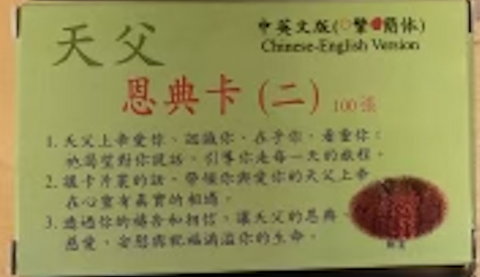 天父
中英文版(○繁●簡体)
Chinese-English Version
恩典卡(二) 100張
1. 天父上帝愛你、認識你、在乎你、看重你;
祂渴望對你說話,引導你走每一天的旅程。
2. 讓卡片裏的話,帶領你與愛你的天父上帝
在心靈有真實的相遇。
3. 透過你的禱告和相信,讓天父的恩典、
慈愛、安慰與祝福滿溢你的生命。